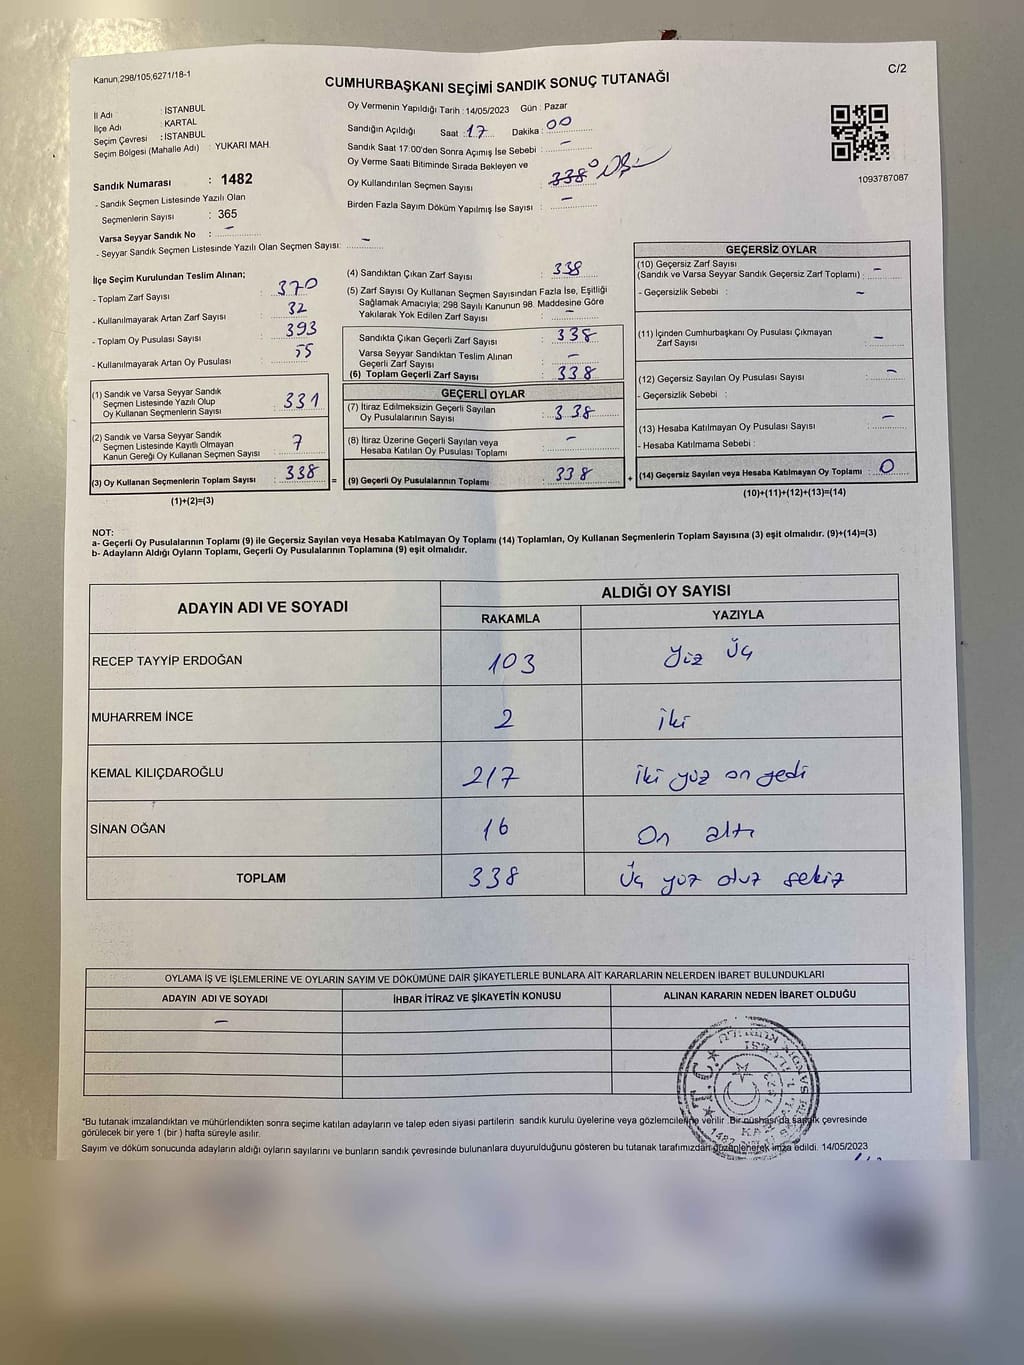 Kanun,298/105,6271/18-1
C/2
CUMHURBAŞKANI SEÇİMİ SANDIK SONUÇ TUTANAĞI
İl Adı : İSTANBUL
İlçe Adı : KARTAL
Seçim Çevresi : İSTANBUL
Seçim Bölgesi (Mahalle Adı) : YUKARI MAH.
Sandık Numarası : 1482
- Sandık Seçmen Listesinde Yazılı Olan
Seçmenlerin Sayısı : 365
Varsa Seyyar Sandık No : -
- Seyyar Sandık Seçmen Listesinde Yazılı Olan Seçmen Sayısı: -
Oy Vermenin Yapıldığı Tarih : 14/05/2023 Gün : Pazar
Sandığın Açıldığı Saat : 17 Dakika : 00
Sandık Saat 17:00'den Sonra Açımış İse Sebebi : -
Oy Verme Saati Bitiminde Sırada Bekleyen ve
Oy Kullandırılan Seçmen Sayısı : 338 0
Birden Fazla Sayım Döküm Yapılmış İse Sayısı : -
1093787087
İlçe Seçim Kurulundan Teslim Alınan;
- Toplam Zarf Sayısı : 370
- Kullanılmayarak Artan Zarf Sayısı : 32
- Toplam Oy Pusulası Sayısı : 393
- Kullanılmayarak Artan Oy Pusulası : 55
(1) Sandık ve Varsa Seyyar Sandık
Seçmen Listesinde Yazılı Olup
Oy Kullanan Seçmenlerin Sayısı : 331
(2) Sandık ve Varsa Seyyar Sandık
Seçmen Listesinde Kayıtlı Olmayan
Kanun Gereği Oy Kullanan Seçmen Sayısı : 7
(3) Oy Kullanan Seçmenlerin Toplam Sayısı : 338 =
(1)+(2)=(3)
(4) Sandıktan Çıkan Zarf Sayısı : 338
(5) Zarf Sayısı Oy Kullanan Seçmen Sayısından Fazla İse, Eşitliği
Sağlamak Amacıyla; 298 Sayılı Kanunun 98. Maddesine Göre
Yakılarak Yok Edilen Zarf Sayısı : -
Sandıkta Çıkan Geçerli Zarf Sayısı : 338
Varsa Seyyar Sandıktan Teslim Alınan
Geçerli Zarf Sayısı : -
(6) Toplam Geçerli Zarf Sayısı : 338
GEÇERLİ OYLAR
(7) İtiraz Edilmeksizin Geçerli Sayılan
Oy Pusulalarının Sayısı : 338
(8) İtiraz Üzerine Geçerli Sayılan veya
Hesaba Katılan Oy Pusulası Toplamı : -
(9) Geçerli Oy Pusulalarının Toplamı : 338 +
GEÇERSİZ OYLAR
(10) Geçersiz Zarf Sayısı
(Sandık ve Varsa Seyyar Sandık Geçersiz Zarf Toplamı) : -
- Geçersizlik Sebebi : -
(11) İçinden Cumhurbaşkanı Oy Pusulası Çıkmayan
Zarf Sayısı : -
(12) Geçersiz Sayılan Oy Pusulası Sayısı : -
- Geçersizlik Sebebi :
(13) Hesaba Katılmayan Oy Pusulası Sayısı : -
- Hesaba Katılmama Sebebi :
(14) Geçersiz Sayılan veya Hesaba Katılmayan Oy Toplamı : 0
(10)+(11)+(12)+(13)=(14)
NOT:
a- Geçerli Oy Pusulalarının Toplamı (9) ile Geçersiz Sayılan veya Hesaba Katılmayan Oy Toplamı (14) Toplamları, Oy Kullanan Seçmenlerin Toplam Sayısına (3) eşit olmalıdır. (9)+(14)=(3)
b- Adayların Aldığı Oyların Toplamı, Geçerli Oy Pusulalarının Toplamına (9) eşit olmalıdır.
ADAYIN ADI VE SOYADI ALDIĞI OY SAYISI
RAKAMLA YAZIYLA
RECEP TAYYİP ERDOĞAN 103 Yüz Üç
MUHARREM İNCE 2 iki
KEMAL KILIÇDAROĞLU 217 iki yüz on yedi
SİNAN OĞAN 16 On altı
TOPLAM 338 Üç yüz otuz sekiz
OYLAMA İŞ VE İŞLEMLERİNE VE OYLARIN SAYIM VE DÖKÜMÜNE DAİR ŞİKAYETLERLE BUNLARA AİT KARARLARIN NELERDEN İBARET BULUNDUKLARI
ADAYIN ADI VE SOYADI İHBAR İTİRAZ VE ŞİKAYETİN KONUSU ALINAN KARARIN NEDEN İBARET OLDUĞU
-
T.C.
1482
*Bu tutanak imzalandıktan ve mühürlendikten sonra seçime katılan adayların ve talep eden siyasi partilerin sandık kurulu üyelerine veya gözlemcilerine verilir. Bir nüshası da sandık çevresinde
görülecek bir yere 1 (bir ) hafta süreyle asılır.
Sayım ve döküm sonucunda adayların aldığı oyların sayılarını ve bunların sandık çevresinde bulunanlara duyurulduğunu gösteren bu tutanak tarafımızdan düzenlenerek imza edildi. 14/05/2023